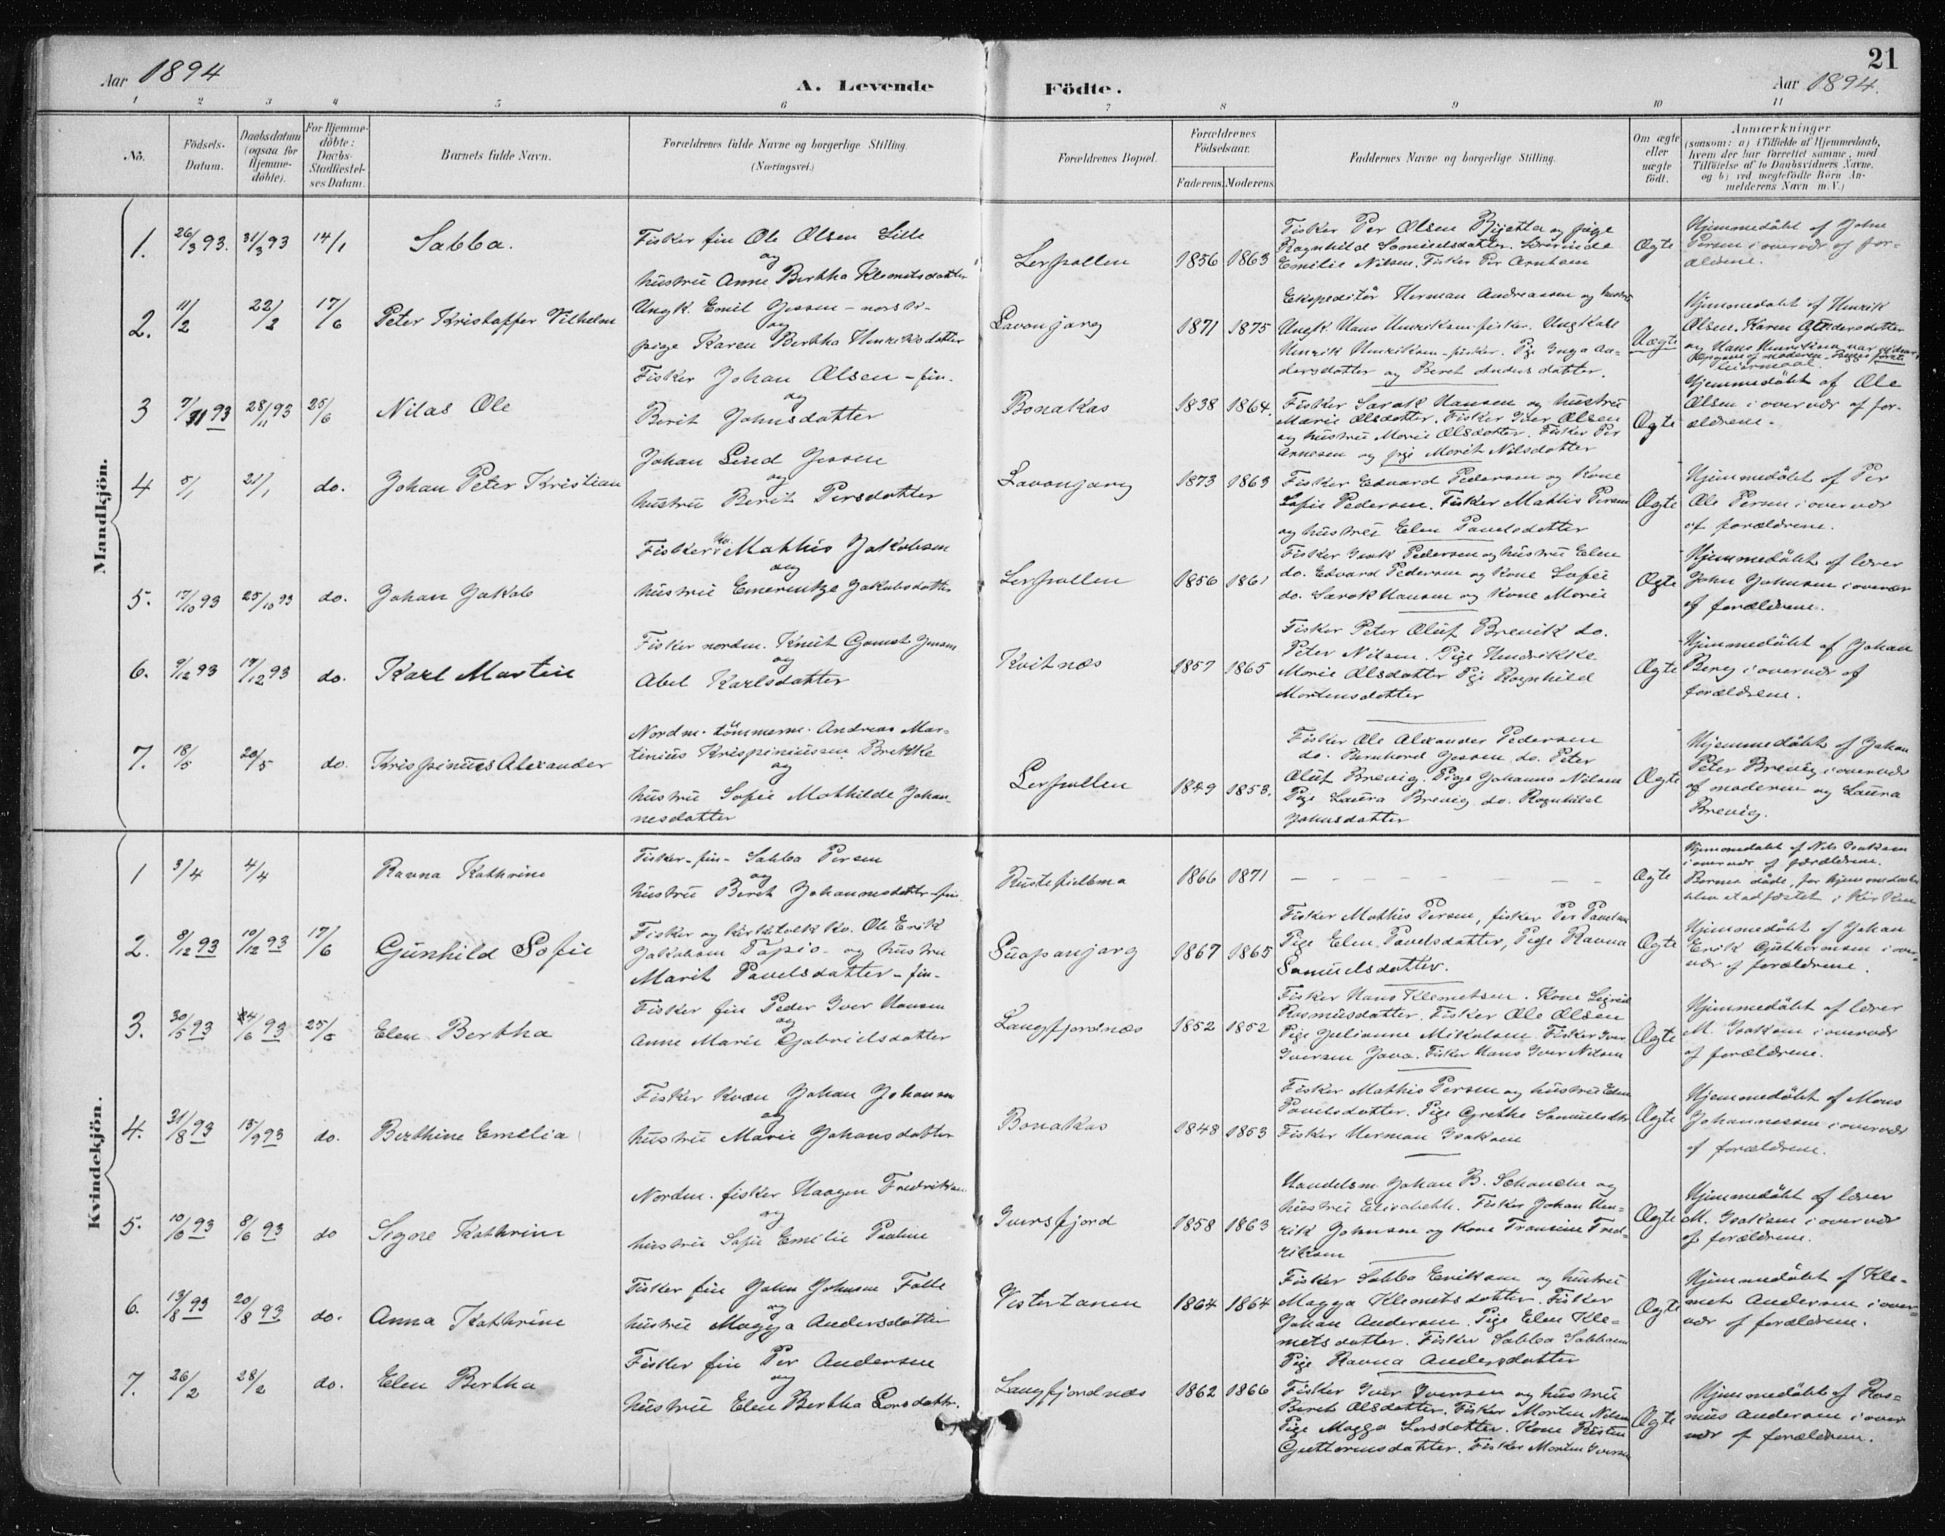 Aar 1894
A. Levende
Födte.
21
Aar 1894.
1 2 3 4 5 6 7 8 9 10 11
No.
Födsels-
Datum.
Daabsdatum
(ogsaa for
Hjemme-
döbte).
For Hjemme-
döbte:
Daabs-
Stadfæstel-
ses Datum.
Barnets fulde Navn.
Forældrenes fulde Navne og borgerlige Stilling.
(Næringsvei.)
Forældrenes Bopæl.
Forældrenes
Födselsaar.
Faderens.
Moderens.
Faddernes Navne og borgerlige Stilling.
Om ægte
eller
uægte
födt.
Anmærkninger
(saasom: a) i Tilfælde af Hjemmedaab,
hvem der har forrettet samme, med
Tilföielse af to Daabsvidners Navne,
og b) ved uægtefödte Börn An-
melderens Navn m. V.)
Mandkjön.
1. 26/3 93. 31/3 93 14/1 Sabba.
Fisker fin Ole Olsen Lille
og
hustru Anne Bertha Klemetsdatter
Lerpollen 1856 1863
Fisker Per Olsen og pige
Ragnhild Samuelsdatter.
Emilie Nilsen. Fisker Per
Ægte
Hjemmedøbt af John
Persen i overvær af for-
ældrene.
2. 11/2 22/2 17/6 Peter Kristoffer Vilhelm
Ungk. Emil Jessen – norsk –
og
pige Karen Bertha Henriksdatter
Lavonjarg 1871 1875
Ekspeditør Herman Andreassen og hustru
Ungk Hans Henriksen fisker. Ungkarl
Henrik Henriksen – fisker. Pige Inga An-
dersdatter og Beret Andersdatter.
Uægte
Hjemmedøbt af Henrik
Olsen. Karen
og Hans Henriksen var
3 7/11 93 28/11 93 25/6 Nilas Ole
Fisker Johan Olsen – fin.
og
Berit Johnsdatter
Bonakas 1838 1864.
Fisker Sarak Hansen og hustru
Marie Olsdatter. Fisker Iver Olsen
og hustru Marie Olsdatter. Fisker Per
Arnesen og pige Marit Nilsdatter
Ægte
Hjemmedøbt af Ole
Olsen i overvær af for-
ældrene.
4 5/1 21/1 do. Johan Peter Kristian
Johan Lind Jessen
og
hustru Berit Persdatter
Lavonjarg 1873 1863
Fisker Edvard Pedersen og Kone
Sofie Pedersen. Fisker Mathis Persen
og hustru Elen Pavelsdatter
Ægte
Hjemmedøbt af Per
Ole Persen i overvær
af forældrene.
5. 17/10 93 25/10 93 do. Johan Jakob
Fisker Mathis Jakobsen
og
hustru Emerentze Jakobsdatter
Lerpollen 1856 1861
Fisker Isak Pedersen og hustru Elen
do. Edvard Pedersen og Kone Sofie
do. Sarak Hansen og Kone Marie
Ægte
Hjemmedøbt af lærer
John Johnsen i overvær
af forældrene.
6. 9/12 93 17/12 93 do. Karl Martin
Fisker nordm. Knut Gamst Jensen
og
Abel Karlsdatter
Kvitnæs 1857 1865
Fisker Peter Oluf Brevik do.
Peter Nilsen. Pige Hendrikke
Marie Olsdatter Pige Ragnhild
Mortensdatter
Ægte
Hjemmedøbt af Johan
Berg i overvær af
forældrene.
7. 18/5 20/5 do. Krispinus Alexander
Nordm. tømmerm. Andreas Mar-
tinius Krispiniussen Brekke
og
hustru Sofie Mathilde Johan-
nesdatter
Lerpollen 1849 1853.
Fisker Ole Alexander Pedersen
do. Bernhard Jessen do. Peter
Oluf Brevig. Pige Johanna Nilsen
Pige Laura Brevig do. Ragnhild
Johnsdatter
Ægte
Hjemmedøbt af Johan
Peter Brevig i overvær
af moderen og Laura
Brevig.
Kvindekjön.
1 3/4 4/4 Ravna Kathrine
Fisker – fin – Sabba Persen
og
hustru Berit Johannesdatter – fin.
Rustefielbma 1866 1871
– – – – – – –
Ægte
Hjemmedøbt af Nils Isaksen
i overvær af forældrene.
Barnet døde, før hjemmedaaben
blev stadfæstet i kirken
2. 8/12 93 10/12 93 17/6 Gunhild Sofie
Fisker og kirketolk kv. Ole Erik
Jakobsen Tapio – og hustru
Marit Pavelsdatter – fin –
Suapanjarg 1867 1865
Fisker Mathis Persen, fisker Per Pavelsen
Pige Elen Pavelsdatter, Pige Ravna
Samuelsdatter.
Ægte
Hjemmedøbt af Johan
Erik Guttormsen i over-
vær af forældrene.
3. 30/5 93 4/6 93 25/6 Elen Bertha
Fisker fin Peder Iver Hansen
og
Anne Marie Gabrielsdatter
Langfjordnæs 1852 1852
Fisker Hans Klemetsen. Kone Sigrid
Rasmusdatter. Fisker Ole Olsen
Pige Julianne Mikalsen. Fisker Iver
Iversen Java. Fisker Hans Iver Nilsen
Ægte
Hjemmedøbt af lærer
M. Isaksen i overvær
af forældrene.
4. 31/8 93 15/9 93 do. Berthine Emelia
Fisker kvæn Johan Johansen
og
hustru Marie Johansdatter
Bonakas 1848 1853
Fisker Mathis Persen og hustru Elen
Pavelsdatter. Pige Grethe Samuelsdtr
Fisker Herman Isaksen
Ægte
Hjemmedøbt af Mons
Johannessen i overvær
af forældrene.
5. 10/6 93 8/6 93 do Signe Kathrine
Nordm. fisker Haagen Fredriksen
og
hustru Sofie Emilie Pauline
Iversfjord 1858 1863
Handelsm. Johan B. Schanche og
hustru Elisabeth. Fisker Johan Hen-
rik Johnsen og Kone Fransine Fred-
riksen
Ægte
Hjemmedøbt af lærer
M. Isaksen i overvær
af forældrene.
6. 13/8 93 20/8 93 do. Anna Kathrine
Fisker fin John Johnsen Falle
og
hustru Magga Andersdatter
Vestertanen 1864 1864
Fisker Sabba Eriksen og hustru
Magga Klemetsdatter. Fisker
Johan Andersen. Pige Elen Kle-
metsdatter. Fisker Sabba Sabbasen
Pige Ravna Andersdatter
Ægte
Hjemmedøbt af Kle-
met Andersen i over-
vær af forældrene.
7. 26/2 28/2 do. Elen Bertha
Fisker fin Per Andersen
og
hustru Elen Bertha Larsdattr.
Langfjordnæs 1862 1866
Fisker Iver Iversen og hustru
Berit Olsdatter. Fisker Morten Nilsen
Pige Magga Larsdatter. Kone Risten
Guttormsdatter. Fisker Morten Iversen
Ægte
Hjemmedøbt af Ras-
mus Andersen i over
vær af forældrene.